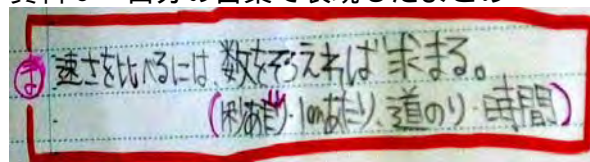 ま 速さを比べるには、数をそろえれば求まる。
(1秒あたり・1mあたり、道のり・時間)